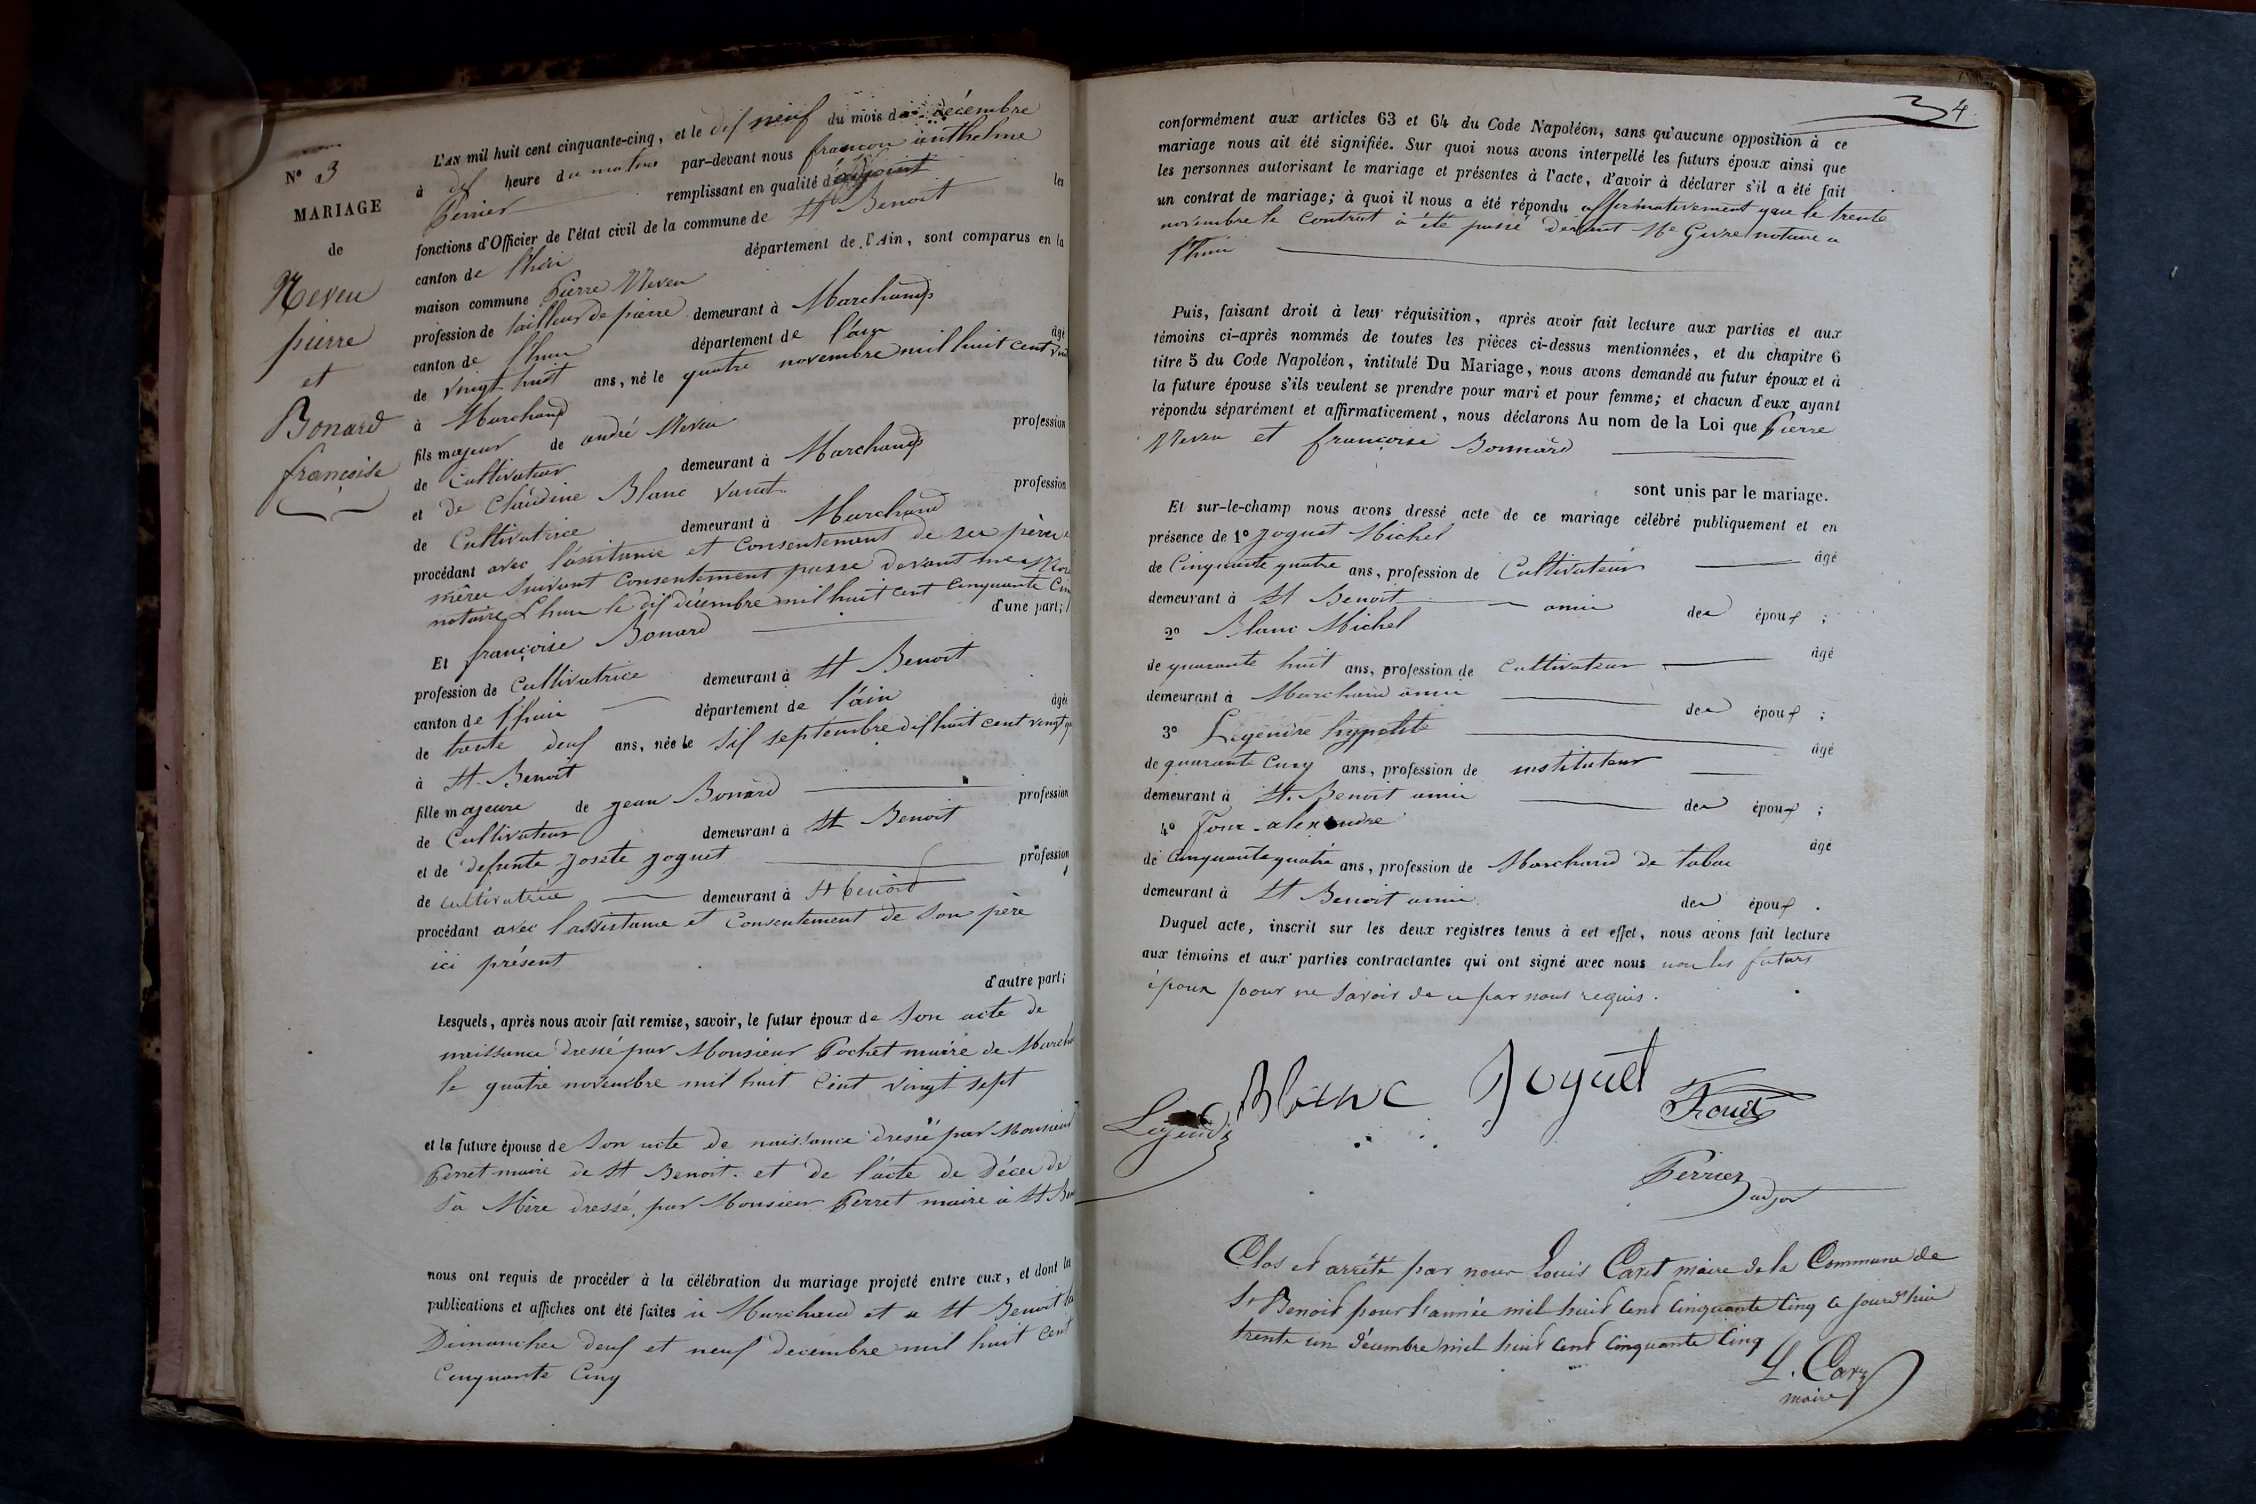 N° 3
MARIAGE
de
Neveu
pierre
et
Bonard
françoise
L'AN mil huit cent cinquante-cinq, et le dix neuf du mois de décembre
à dix heure du matin par-devant nous françon anthelme
Perrier remplissant en qualité d'adjoint les
fonctions d'Officier de l'état civil de la commune de St Benoit
canton de l'huis département de l'Ain, sont comparus en la
maison commune Pierre Neveu
profession de tailleur de pierre demeurant à Marchamp
canton de l'huis département de l'ain âgé
de vingt huit ans, né le quatre novembre mil huit cent vingt
à Marchamp
fils majeur de andré Neveu profession
de Cultivateur demeurant à Marchamp
et de Claudine Blanc vivant profession
de Cultivatrice demeurant à Marchamp
procédant avec l'assitance et consentement de ses père et
mère suivant consentement passé devant me
notaire L'huis le dix décembre mil huit cent cinquante Cinq
d'une part;
Et françoise Bonard
profession de Cultivatrice demeurant à St Benoit
canton de l'huis département de l'ain âgée
de trente deux ans, née le six septembre dix huit cent vingt
à St Benoit
fille majeure de jean Bonard profession
de Cultivateur demeurant à St Benoit
et de défunte josete joguet profession
de cultivatrice demeurant à St benoit
procédant avec l'assistance et Consentement de son père
ici présent
d'autre part;
Lesquels, après nous avoir fait remise, savoir, le futur époux de Son acte de
naissance dressé par Monsieur Pochet maire de March
le quatre novembre mil huit cent vingt sept
et la future épouse de Son acte de naissance dressé par Monsieur
Perret maire de St Benoit et de l'acte de Décès de
Sa Mère dressé par Monsieur Perret maire à St Ben
nous ont requis de procéder à la célébration du mariage projeté entre eux, et dont la
publications et affiches ont été faites à Marchamp et a St Benoit les
Dimanches deux et neuf décembre mil huit cent
Cinquante Cinq
34
conformément aux articles 63 et 64 du Code Napoléon, sans qu'aucune opposition à ce
mariage nous ait été signifiée. Sur quoi nous avons interpellé les futurs époux ainsi que
les personnes autorisant le mariage et présentes à l'acte, d'avoir à déclarer s'il a été fait
un contrat de mariage; à quoi il nous a été répondu affirmativement que le trente
novembre le Contrat à été passé devant Me Givre notaire a
l'huis
Puis, faisant droit à leur réquisition, après avoir fait lecture aux parties et aux
témoins ci-après nommés de toutes les pièces ci-dessus mentionnées, et du chapitre 6
titre 5 du Code Napoléon, intitulé Du Mariage, nous avons demandé au futur époux et à
la future épouse s'ils veulent se prendre pour mari et pour femme; et chacun d'eux ayant
répondu séparément et affirmativement, nous déclarons Au nom de la Loi que Pierre
Neveu et françoise Bonnard
sont unis par le mariage.
Et sur-le-champ nous avons dressé acte de ce mariage célébré publiquement et en
présence de 1° joguet Michel
âgé
de Cinquante quatre ans, profession de Cultivateur
demeurant à St Benoit amis des époux ;
2° Blanc Michel
âgé
de quarante huit ans, profession de cultivateur
demeurant à Marchamp amis des époux ;
3° Legendre hyppolite
âgé
de quarante Cinq ans, profession de instituteur
demeurant à St. Benoit amis des époux ;
4° four alexandre
âgé
de Cinquante quatre ans, profession de Marchand de tabac
demeurant à St Benoit amis des époux .
Duquel acte, inscrit sur les deux registres tenus à cet effet, nous avons fait lecture
aux témoins et aux parties contractantes qui ont signé avec nous non les futurs
époux pour ne savoir de ce par nous requis.
Legendre Blanc Joguet
Perrier adjot
Clos et arrêté par nous Louis Caret maire de la Commune de
St Benoit pour l'année mil huit Cent Cinquante Cinq ce jourd'hui
trente un décembre mil huit Cent Cinquante Cinq
maire